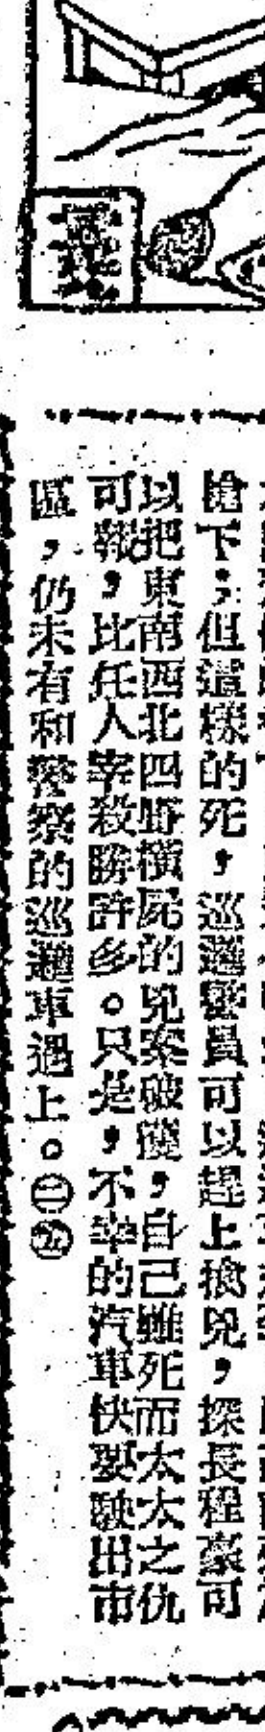 槍下；但這樣的死，巡邏警員可以趕上擒兇，探長程豪可
以把東南西北四野橫屍的兇案破獲，自己雖死而太太之仇
可報，比任人宰殺勝許多。只是，不幸的汽車快要駛出市
區，仍未有和警察的巡邏車遇上。㊁㊄